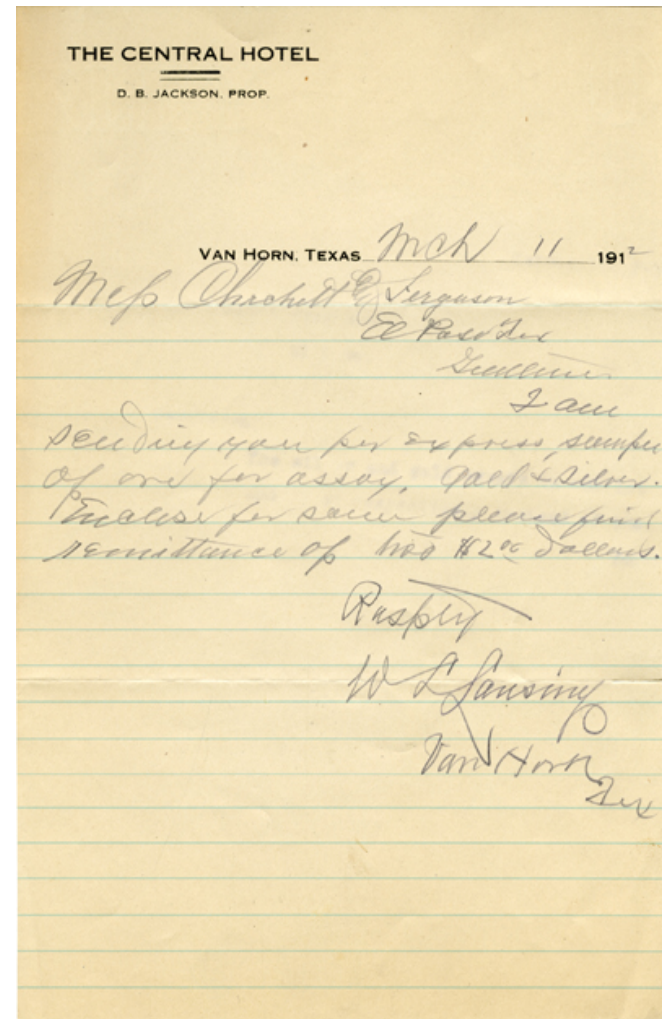 THE CENTRAL HOTEL
D. B. JACKSON, PROP.
VAN HORN, TEXAS Mch 11 1912
Mess Chrchett & Ferguson
El Paso Tex
Gentlemen
I am
sending you per express, sample
of ore for assay. Gold & Silver.
Enclose for same please find
remittance of two $2 00 Dollars.
Resply
W L Lansing
Van Horn
Tex